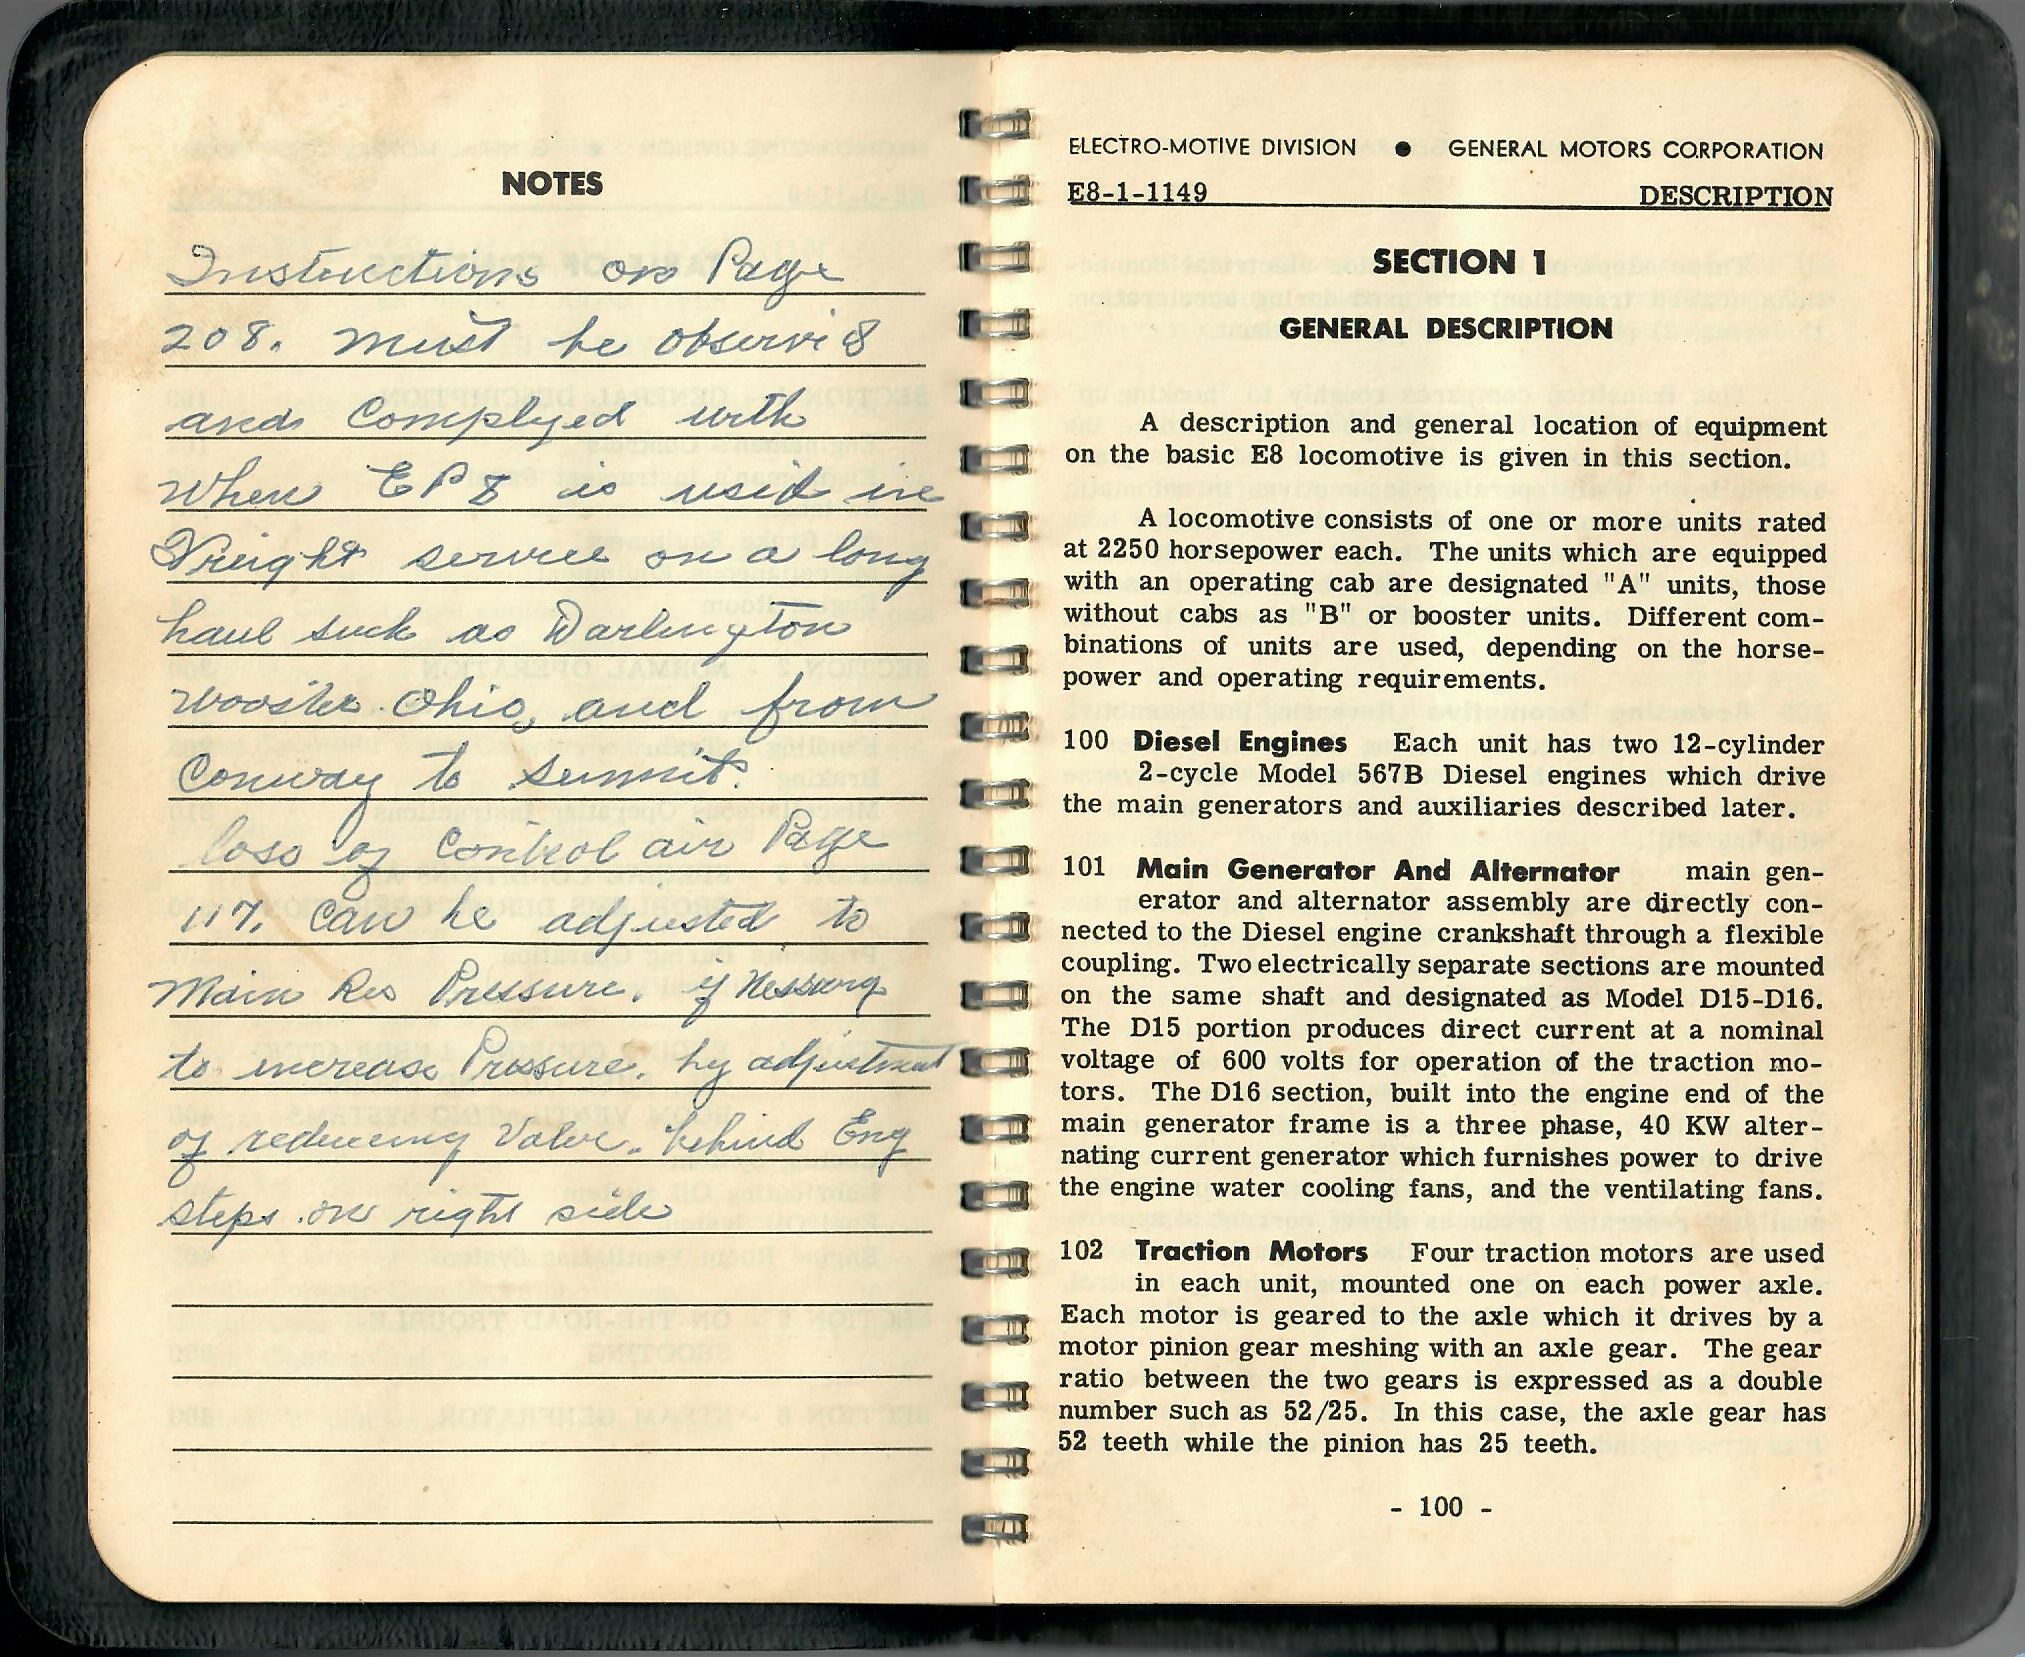 NOTES
Instructions on Page
208. Must be observed
and Complyed with
When EP8 is used in
Freight service on a long
haul such as Darlington
Wooster Ohio, and from
Conway to Summit.
loss of Control air Page
117. Can be adjusted to
Main Res Pressure. if Nessarry
to increase Pressure. by adjustment
of reducing Valve. behind Eng
steps on right side
ELECTRO-MOTIVE DIVISION ● GENERAL MOTORS CORPORATION
E8-1-1149 DESCRIPTION
SECTION 1
GENERAL DESCRIPTION
A description and general location of equipment
on the basic E8 locomotive is given in this section.
A locomotive consists of one or more units rated
at 2250 horsepower each. The units which are equipped
with an operating cab are designated "A" units, those
without cabs as "B" or booster units. Different com-
binations of units are used, depending on the horse-
power and operating requirements.
100 Diesel Engines Each unit has two 12-cylinder
2-cycle Model 567B Diesel engines which drive
the main generators and auxiliaries described later.
101 Main Generator And Alternator main gen-
erator and alternator assembly are directly con-
nected to the Diesel engine crankshaft through a flexible
coupling. Two electrically separate sections are mounted
on the same shaft and designated as Model D15-D16.
The D15 portion produces direct current at a nominal
voltage of 600 volts for operation of the traction mo-
tors. The D16 section, built into the engine end of the
main generator frame is a three phase, 40 KW alter-
nating current generator which furnishes power to drive
the engine water cooling fans, and the ventilating fans.
102 Traction Motors Four traction motors are used
in each unit, mounted one on each power axle.
Each motor is geared to the axle which it drives by a
motor pinion gear meshing with an axle gear. The gear
ratio between the two gears is expressed as a double
number such as 52/25. In this case, the axle gear has
52 teeth while the pinion has 25 teeth.
- 100 -